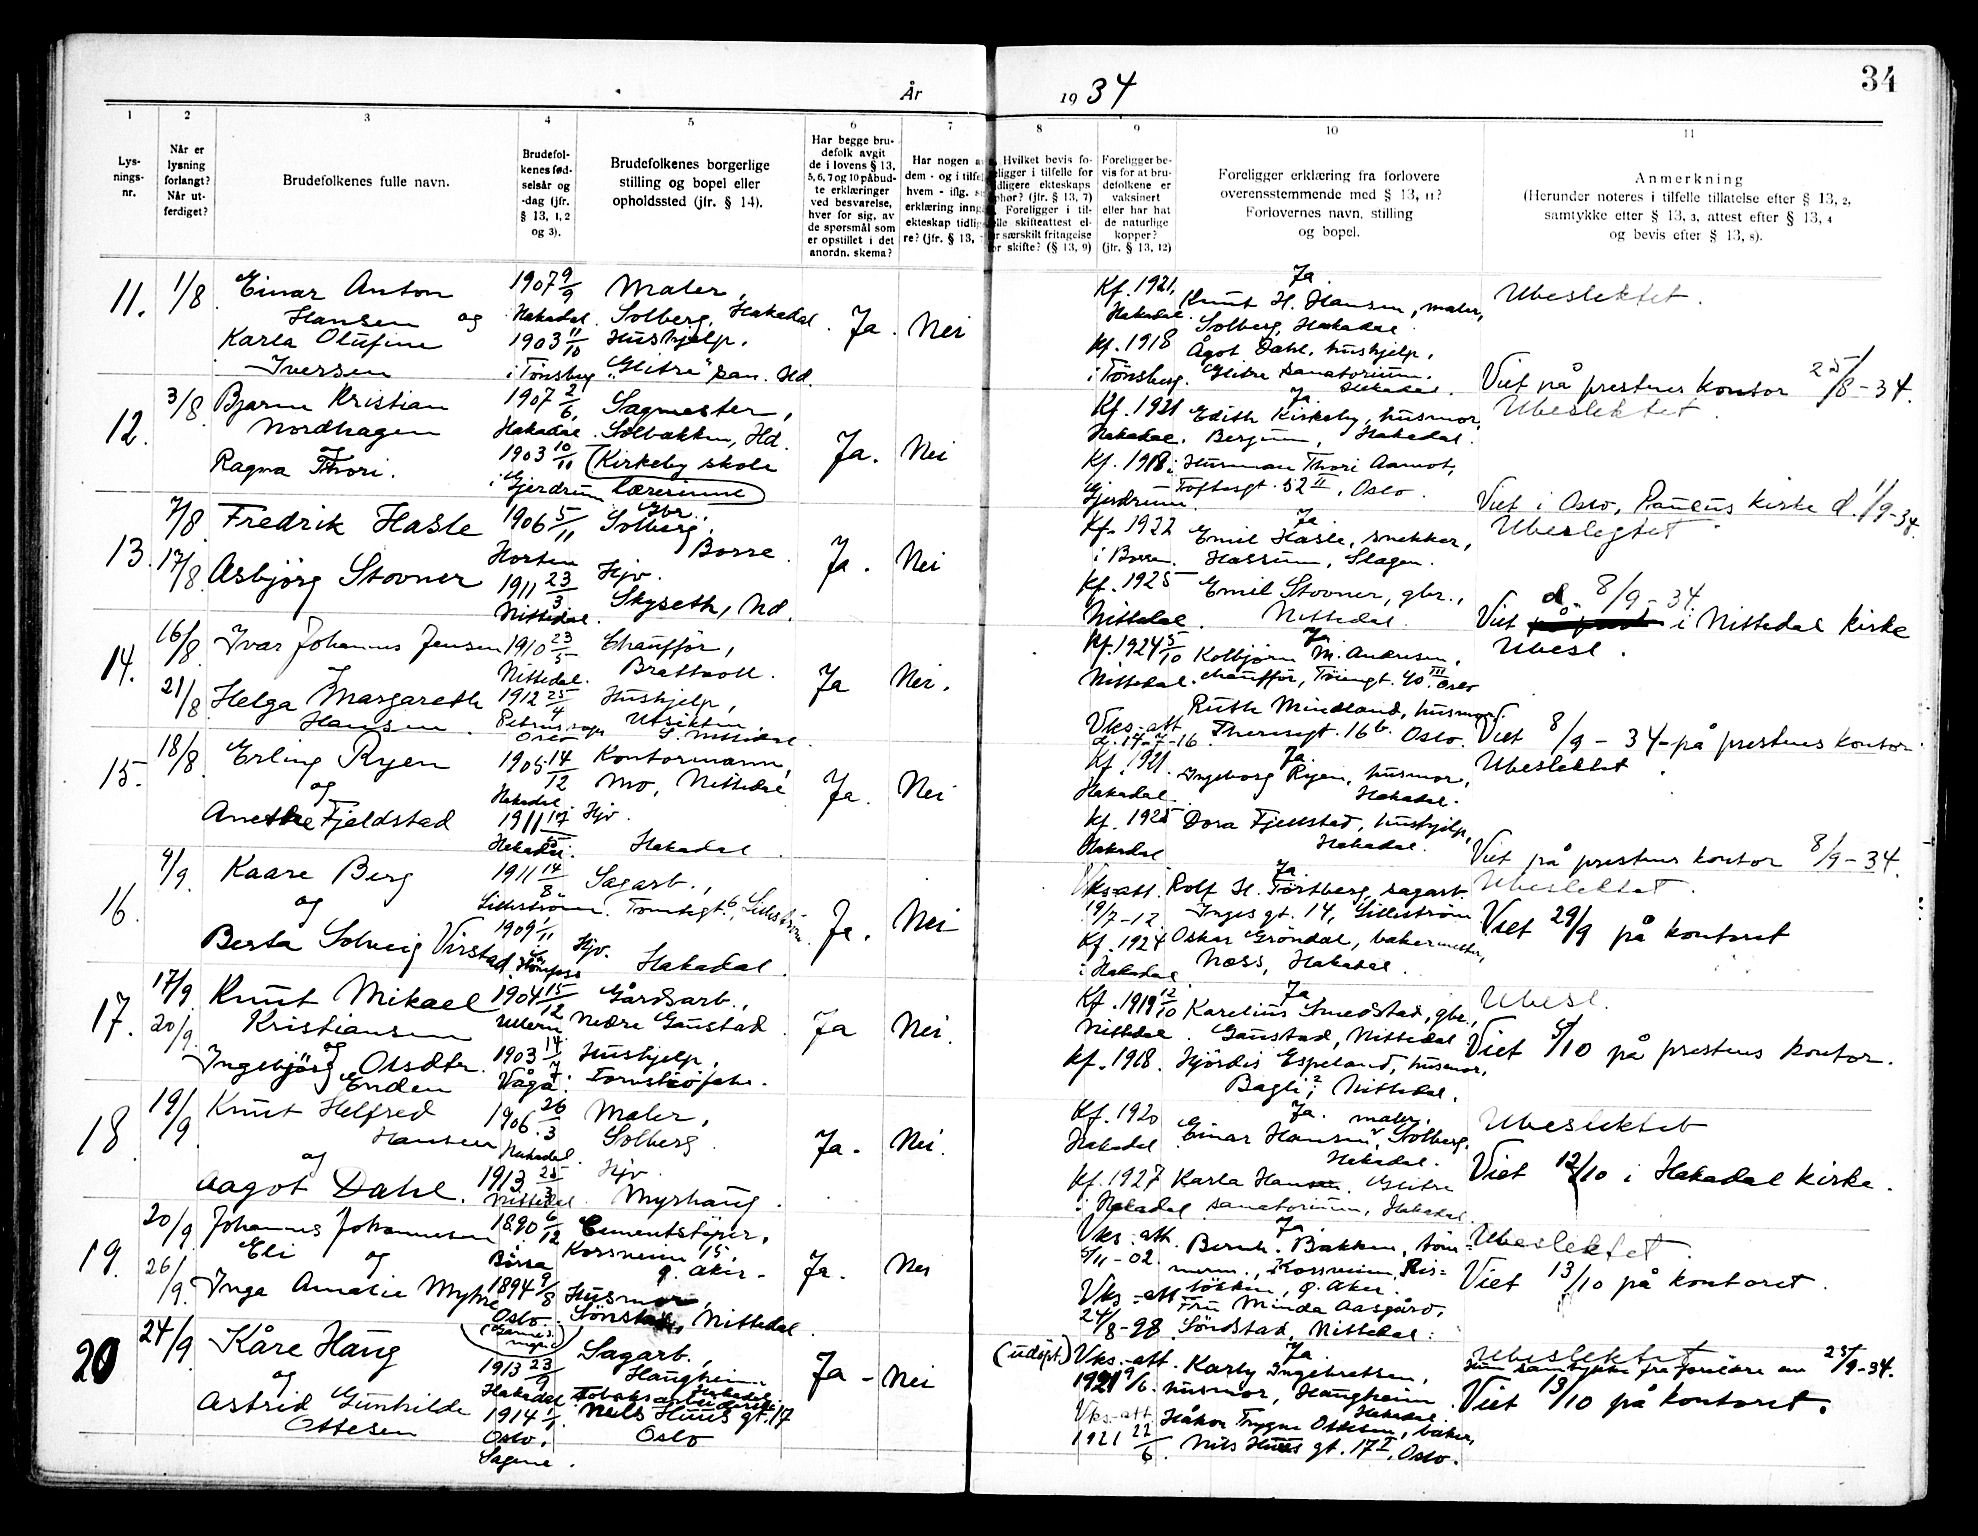 34
År 1934
1 2 3 4 5 6 7 8 9 10 11
Lys-
nings-
nr.
Når er
lysning
forlangt?
Når ut-
ferdiget?
Brudefolkenes fulle navn.
Brudefol-
kenes fød-
selsår og
-dag (jfr.
§ 13, 1, 2
og 3).
Brudefolkenes borgerlige
stilling og bopel eller
opholdssted (jfr. § 14).
Har begge bru-
defolk avgit
de i lovens § 13,
5, 6, 7 og 10 påbud-
te erklæringer
ved besvarelse,
hver for sig, av
de spørsmål som
er opstillet i det
anordn. skema?
Har nogen a
dem - og i tilfe
hvem - iflg. s
erklæring inng
ekteskap tidlig
re? (jfr. § 13,
Hvilket bevis fo-
eligger i tilfelle for
dligere ekteskaps
phør? (jfr. § 13, 7)
Foreligger i til-
elle skifteattest el-
r særskilt fritagelse
or skifte? (§ 13, 9)
Foreligger be-
vis for at bru-
defolkene er
vaksinert
eller har hat
de naturlige
kopper?
(jfr. § 13, 12)
Foreligger erklæring fra forlovere
overensstemmende med § 13, 11?
Forlovernes navn, stilling
og bopel.
Anmerkning
(Herunder noteres i tilfelle tillatelse efter § 13, 2,
samtykke efter § 13, 3, attest efter § 13, 4
og bevis efter § 13, 8).
11. 1/8
Einar Anton
Hansen og
Karla Olufine
Iversen
1907 9/9
Hakadal.
1903 11/10
i Tønsberg
Maler,
Solberg, Hakadal
Hushjelp,
"Glitre" san. Hd.
Ja. Nei
Kf. 1921,
Hakadal.
Kf. 1918
i Tønsberg.
Ja.
Knut H. Hansen, maler,
Solberg, Hakadal.
Ågot Dahl, hushjelp,
Glitre sanatorium.
Hakadal.
Ubeslektet.
Viet på prestens kontor 25/8-34.
12. 3/8
Bjarne Kristian
Nordhagen
og
Ragna Thori.
1907 2/6,
Hakadal.
1903 10/11
i Gjerdrum
Sagmester,
Solbakken, Hd.
(Kirkeby skole
lærerinne)
Ja. Nei
Kf. 1921
Hakadal.
Kf. 1918 i
Gjerdrum.
Ja.
Edith Kirkeby, husmor,
Bergum, Hakadal.
Thori Aamot,
Toftesgt. 52 II, Oslo.
Ubeslektet.
Viet i Oslo, Paulus kirke d. 1/9-34.
13. 7/8
17/8
Fredrik Hasle
Asbjørg Stovner
1906 5/11
Horten
1911 23/3
Nittedal.
Gbr.
Solberg,
Borre.
Hjv.
Skyseth, Nd.
Ja. Nei
Kf. 1922
i Borre.
Kf. 1925
Nittedal.
Ja.
Emil Hasle, snekker,
Hassum, Slagen.
Emil Stovner, gbr.,
Nittedal.
Ubeslegtet
d. 8/9-34.
Viet i Nittedal kirke
14. 16/8
21/8
Ivar Johannes Jensen
og
Helga Margareth
Hansen.
1910 23/5
Nittedal.
1912 25/4
Oslo
Chauffør,
Brattvoll.
Hushjelp,
Utsikten,
Nittedal.
Ja Nei.
Kf. 1924 5/10
Nittedal.
Vks.-att.
d. 14-7-16.
Ja.
Kolbjørn M. Andresen,
chauffør, Tøiengt. 40 III Oslo
Ruth Mindland, husmor.
Theresegt. 16b. Oslo.
Ubesl.
Viet 8/9-34-på prestens kontor.
15. 18/8
Erling Ryen
og
Anethe Fjeldstad
1905 14/12
Hakadal.
1911 17
Hakadal.
Kontormann,
Mo, Nittedal
Hjv.
Hakadal.
Ja. Nei
Kf. 1921.
Hakadal.
Kf. 1925
Hakadal
Ja.
Ingeborg Ryen, husmor,
Hakadal.
Dora Fjellstad, hushjelp,
Hakadal.
Ubeslektet.
Viet på prestens kontor 8/9-34.
16. 4/9.
Kaare Berg
og
Berta Solveig Virstad.
1911 14/8.
Lillestrøm.
1909 1/11
Sagarb.,
Tomtegt. 6, Lillestrøm
Hjv.
Hakadal.
Ja. Nei
Vks-att.
19/7-12.
Kf. 1924
i Hakadal
Ja.
Rolf H. Tørtberg, sagarb.
Inges gt. 14, Lillestrøm
Oskar Grøndal, bakermester,
Næss, Hakadal.
Ubeslektet.
Viet 29/9 på kontoret
17. 17/9.
20/9.
Knut Mikael
Kristiansen
og
Ingebjørg Olsdtr.
Enden
1904 15/12
Ullern.
1903 14/7
Vågå.
Gårdsarb.,
Nedre Gaustad.
Hushjelp,
Ja Nei.
Kf. 1919 12/10
Nittedal.
Kf. 1918.
Ja
Karelius Smedstad, gbr.,
Gaustad, Nittedal
Hjørdis Espeland, husmor,
Bagli?, Nittedal.
Ubesl.
Viet 6/10 på prestens kontor.
18. 19/9
Knut Helfred
Hansen
og
Aagot Dahl.
1906. 26/3
Hakadal.
1913 25/3
Nittedal
Maler,
Solberg.
Hjv.
Myrhaug.
Ja. Nei.
Kf. 1920
Hakadal
Kf. 1927
i Hakadal
Ja. maler,
Einar Hansen, Solberg,
Hakadal.
Karla Hansen. Glitre
sanatorium, Hakadal.
Ubeslektet
Viet 12/10 i Hakadal kirke.
19. 20/9
26/9.
Johannes Johannesen
Eli og
Inga Amalie Myhre
1890 6/12
Børsa
1894 9/8
Oslo.
Cementstøper,
Korsveien 15.
Ø. Aker.
Husmor,
Sønstad, Nittedal.
Ja. Nei
Vks-att.
5/11-02.
Vks.-att
24/8-98.
Ja.
Bernh. Bakken, tøm-
merm., Korsveien, Ris-
løkken, Ø. Aker.
Fru Minda Aasgård,
Søndstad, Nittedal.
Ubeslektet.
Viet 13/10 på kontoret.
20 24/9.
Kåre Haug
og
Astrid Gunhilde
Ottesen
1913 23/9
Hakadal
1914 1/1
Oslo,
Sagene.
Sagarb.,
Haugheim
Hakadal
Tobaksarbeiderske
Nils Huus gt. 17
Oslo
Ja- Nei
(udspt.) Vks.-att.
1921 9/6.
Vks-att.
1921 22/6
Ja.
Karly Ingebretsen,
husmor, Haugheim,
Hakadal.
Håkon Trygve Ottesen, baker,
Nils Huus gt. 17 I, Oslo.
Ubeslektet
Hun samtykke fra foreldre av 25/9-34.
Viet 13/10 på kontoret.